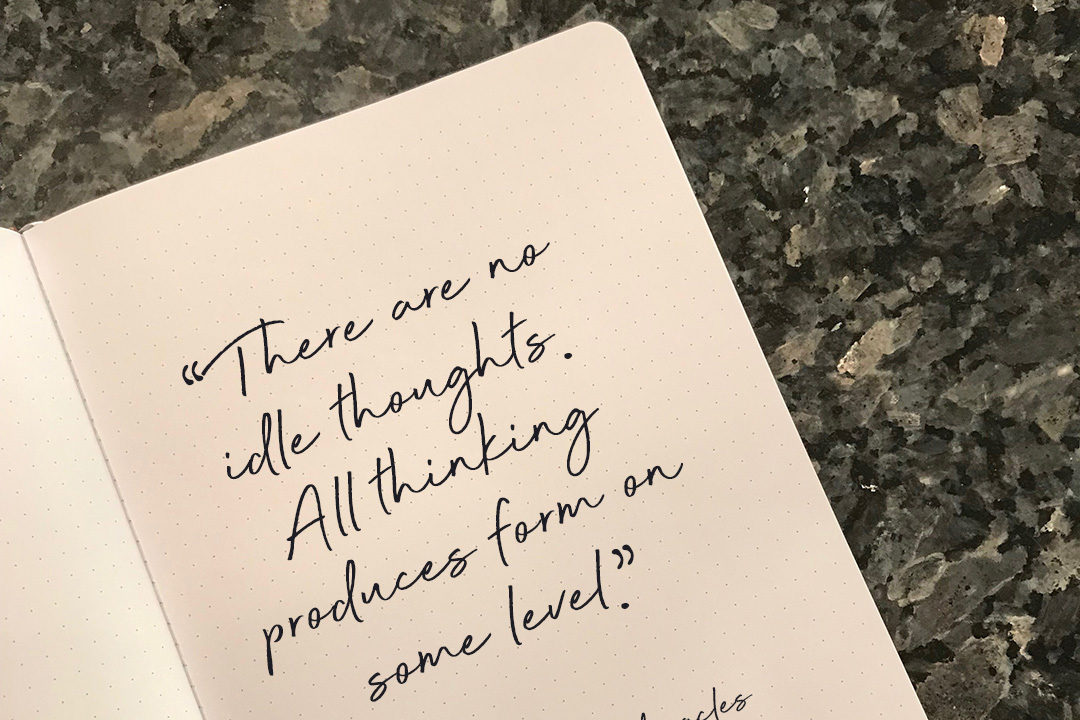 “There are no
idle thoughts.
All thinking
produces form on
some level.”